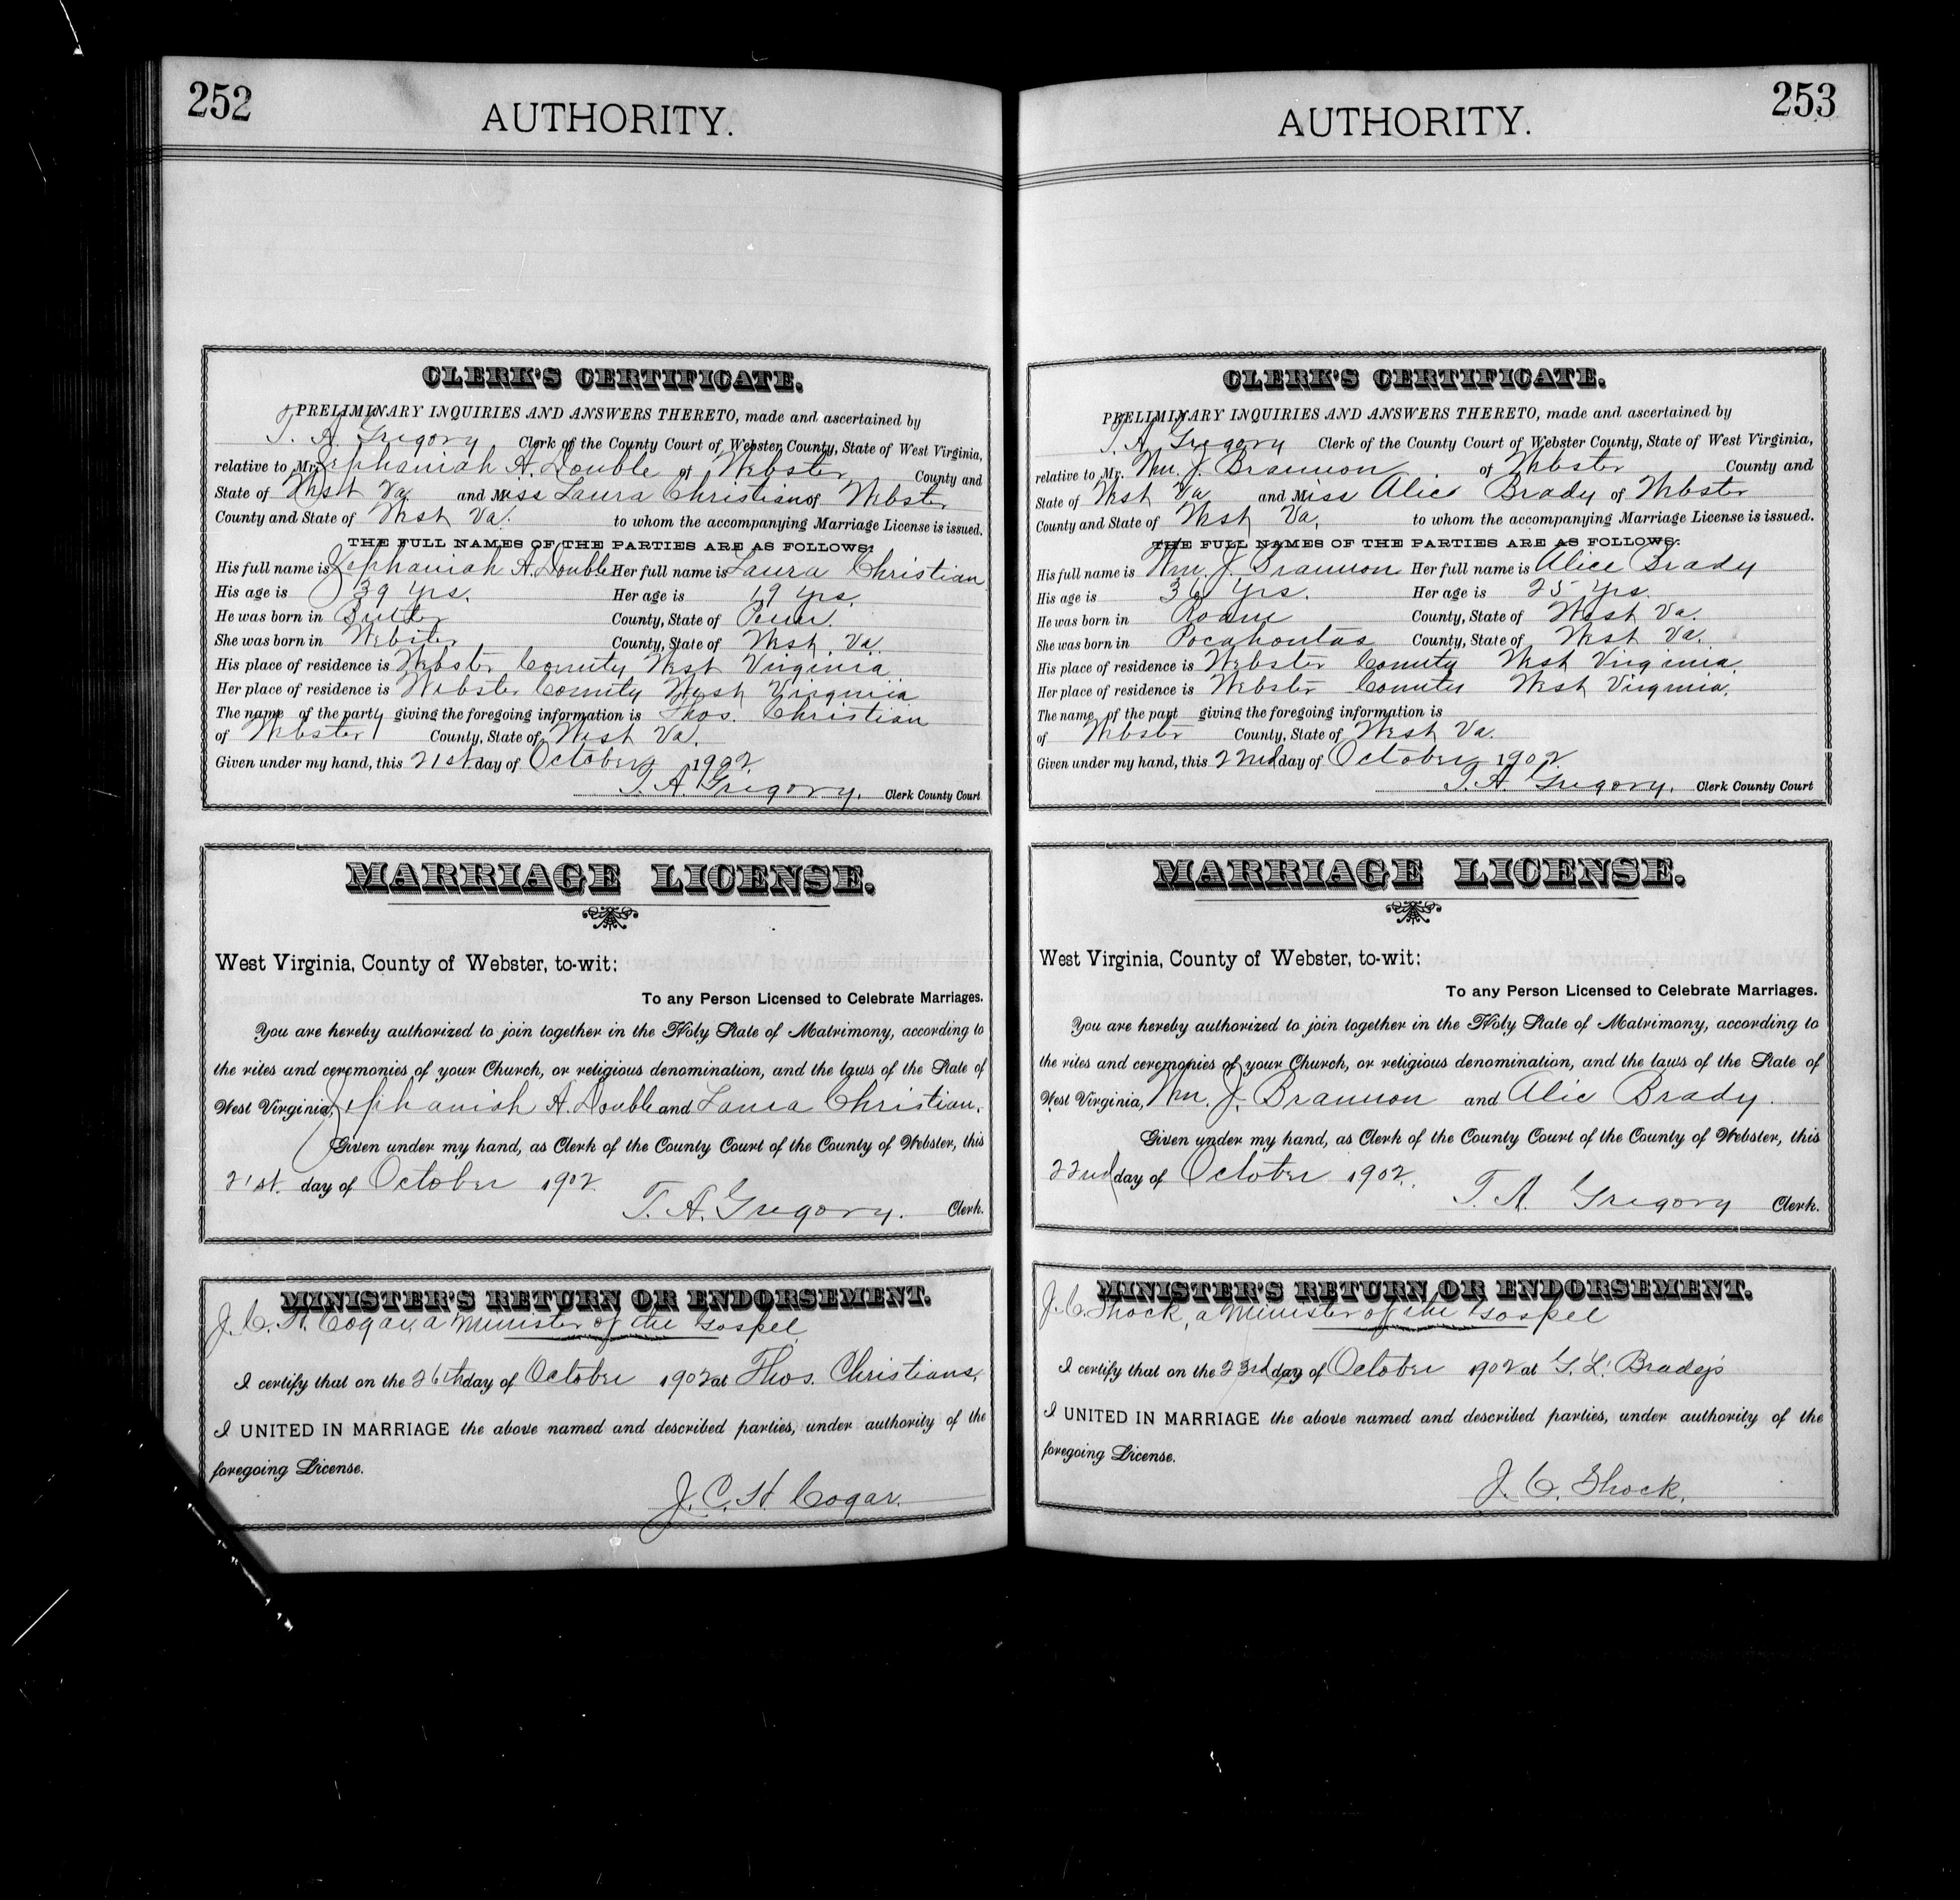 252
AUTHORITY.
CLERK'S CERTIFICATE.
PRELIMINARY INQUIRIES AND ANSWERS THERETO, made and ascertained by
T. A. Gregory Clerk of the County Court of Webster County, State of West Virginia,
relative to Mr. Zephaniah A. Double of Webster County and
State of West Va. and Miss Laura Christian of Webster
County and State of West Va. to whom the accompanying Marriage License is issued.
THE FULL NAMES OF THE PARTIES ARE AS FOLLOWS:
His full name is Zephaniah A. Double Her full name is Laura Christian
His age is 39 yrs. Her age is 19 yrs.
He was born in Butler County, State of Penn.
She was born in Webster County, State of West. Va.
His place of residence is Webster County West Virginia
Her place of residence is Webster County West Virginia
The name of the party giving the foregoing information is Thos. Christian
of Webster County, State of West Va.
Given under my hand, this 21st. day of October 1902.
T. A. Gregory. Clerk County Court
MARRIAGE LICENSE.
West Virginia, County of Webster, to-wit:
To any Person Licensed to Celebrate Marriages.
You are hereby authorized to join together in the Holy State of Matrimony, according to
the rites and ceremonies of your Church, or religious denomination, and the laws of the State of
West Virginia, Zephaniah A. Double and Laura Christian.
Given under my hand, as Clerk of the County Court of the County of Webster, this
21st. day of October 1902.
T. A. Gregory. Clerk.
MINISTER'S RETURN OR ENDORSEMENT.
J. C. H. Cogar, a Minister of the Gospel
I certify that on the 26th day of October 1902 at Thos. Christians,
I UNITED IN MARRIAGE the above named and described parties, under authority of the
foregoing License.
J. C. H. Cogar.
253
AUTHORITY.
CLERK'S CERTIFICATE.
PRELIMINARY INQUIRIES AND ANSWERS THERETO, made and ascertained by
T. A. Gregory Clerk of the County Court of Webster County, State of West Virginia,
relative to Mr. Wm. J. Brannon of Webster County and
State of West Va and Miss Alice Brady of Webster
County and State of West Va. to whom the accompanying Marriage License is issued.
THE FULL NAMES OF THE PARTIES ARE AS FOLLOWS:
His full name is Wm. J. Brannon Her full name is Alice Brady
His age is 36 yrs. Her age is 25 yrs.
He was born in Roane County, State of West Va.
She was born in Pocahontas County, State of West Va.
His place of residence is Webster County West Virginia.
Her place of residence is Webster County West Virginia.
The name of the part giving the foregoing information is
of Webster County, State of West Va.
Given under my hand, this 22nd day of October 1902.
T. A. Gregory. Clerk County Court
MARRIAGE LICENSE.
West Virginia, County of Webster, to-wit:
To any Person Licensed to Celebrate Marriages.
You are hereby authorized to join together in the Holy State of Matrimony, according to
the rites and ceremonies of your Church, or religious denomination, and the laws of the State of
West Virginia, Wm. J. Brannon and Alic Brady.
Given under my hand, as Clerk of the County Court of the County of Webster, this
22nd day of October 1902.
T. A. Gregory Clerk.
MINISTER'S RETURN OR ENDORSEMENT.
J. C. Shock, a Minister of the Gospel
I certify that on the 23rd day of October 1902 at S. L. Brady's
I UNITED IN MARRIAGE the above named and described parties, under authority of the
foregoing License.
J. C. Shock.